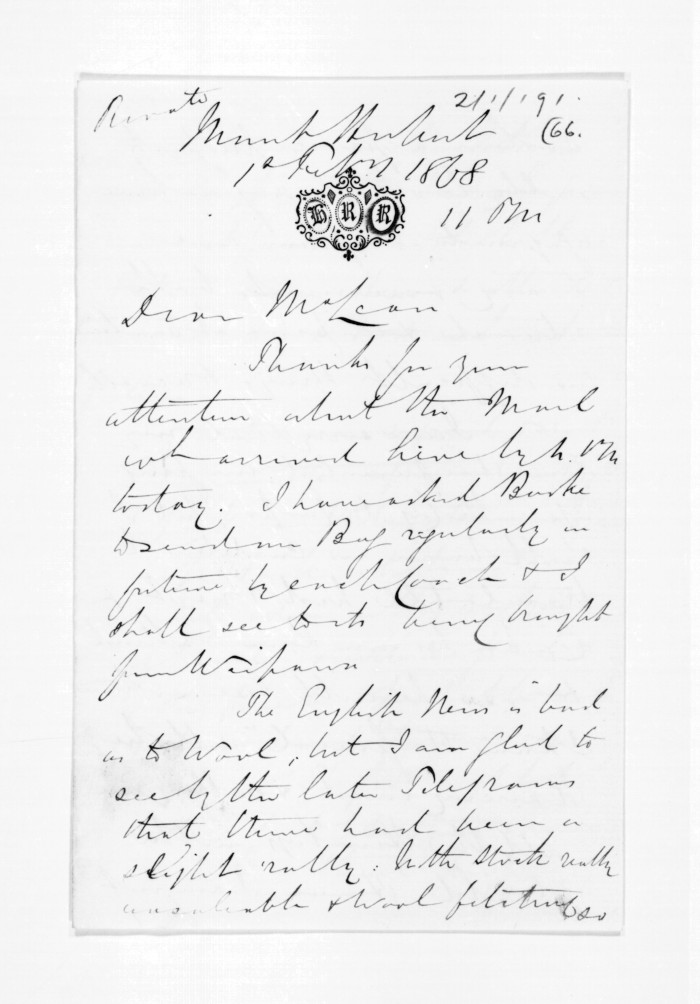 Private
21/1/91.
Mount Herbert
(66.
1st Feby 1868
H R R
11 PM
Dear McLean
Thanks for your
attention about the Mail
wh arrived here by h. PM
today. I have asked Burke
to send my Bag regularly in
future by each Coach & I
shall see to its being brought
from Waipawa
The English News is bad
as to Wool, but I am glad to
see by the later Telegrams
that there had been a
slight rally: With Stock really
unsaleable & Wool fetching so